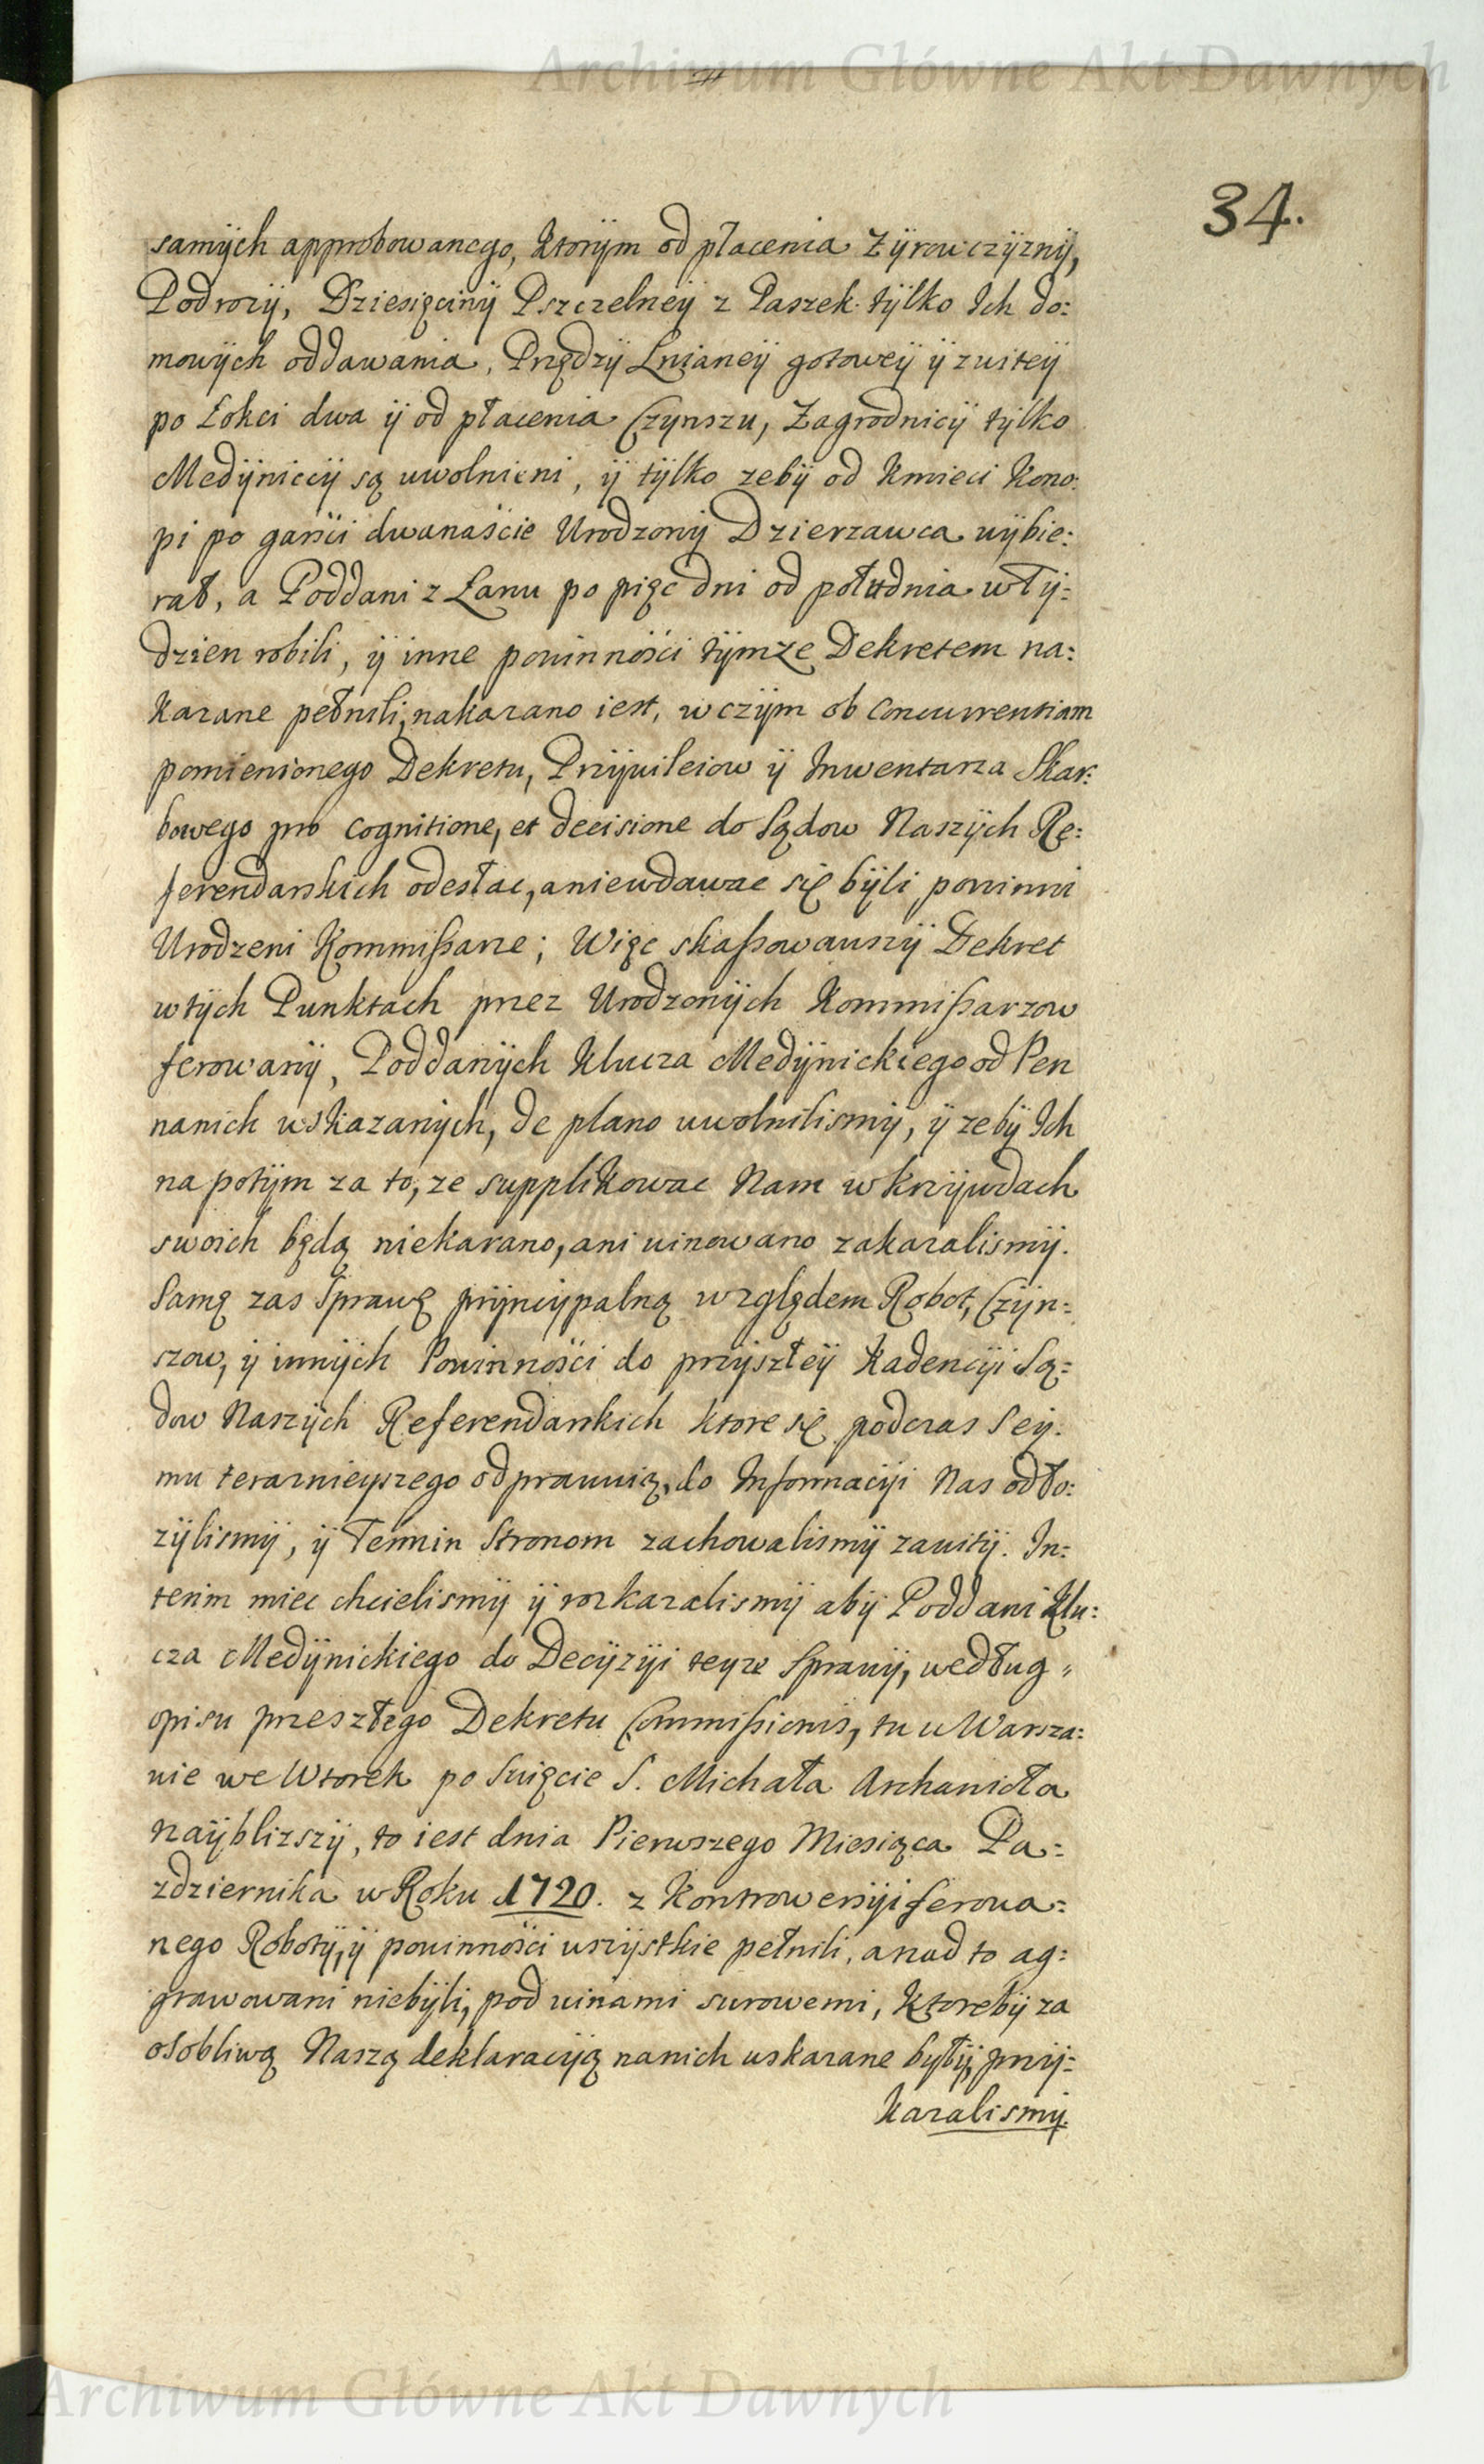 Archiwum Główne Akt Dawnych
34.
samÿch approbowanego, ktorÿm od płacenia Zÿrowczÿznÿ,
Podrozÿ, Dziesięcinÿ Pszczelneÿ z Paszek tÿlko Ich do:
mowÿch oddawania, Przędzÿ Lnianeÿ gotoweÿ ÿ zwiteÿ
po Łokci dwa ÿ od płacenia Czynszu, Zagrodnicÿ tÿlko
Medÿniccÿ są uwolnieni, ÿ tÿlko zebÿ od Kmieci Kono:
pi po garści dwanaście Urodzonÿ Dzierzawca wÿbie:
rał, a Poddani z Łanu po pięc dni od południa w Tÿ:
dzien robili, ÿ inne powinności tÿmze Dekretem na:
kazane pełnili, nakazano iest, w czÿm ob concurrentiam
pomienionego Dekretu, Przÿwileiow ÿ Inwentarza Skar:
bowego pro cognitione, et decisione do Sądow Naszÿch Re:
ferendarskich odesłac, a niewdawac się bÿli powinni
Urodzeni Kommißarze; Więc skaßowawszÿ Dekret
w tÿch Punktach przez Urodzonÿch Kommißarzow
ferowanÿ, Poddanÿch Klucza Medÿnickiego od Pen
nanich wskazanÿch, de plano uwolnilismÿ, ÿ zebÿ Ich
na potÿm za to, ze supplikowac Nam w krzÿwdach
swoich będą niekarano, ani winowano zakazalismÿ.
Samę zas Sprawę prÿncÿpalną względem Robot, Czÿn:
szow, ÿ innÿch Powinności do przÿszłeÿ Kadencÿi Są:
dow Naszÿch Referendarskich ktore się podczas Seÿ:
mu terazniejszego odprawuią, do Informacÿi Nas odło:
zÿlismÿ, ÿ Termin Stronom zachowalismÿ zawitÿ. In:
terim miec chcielismÿ ÿ rozkazalismÿ abÿ Poddani Klu:
cza Medÿnickiego do Decÿzÿi teyze Sprawÿ, według
opisu przeszłego Dekretu Commißionis, tu w Warsza:
wie we Wtorek po Swięcie S. Michała Archanioła
naÿblizszÿ, to iest dnia Pierwszego Miesiąca Pa:
zdziernika w Roku 1720. z Kontrowersÿi ferowa:
nego Robotÿ, ÿ powinności wszÿstkie pełnili, a nad to ag:
grawowani niebÿli, pod winami surowemi, ktorebÿ za
osobliwą Naszą deklaracÿą nanich wskazane bÿłÿ, przÿ:
kazalismÿ.
Archiwum Główne Akt Dawnych